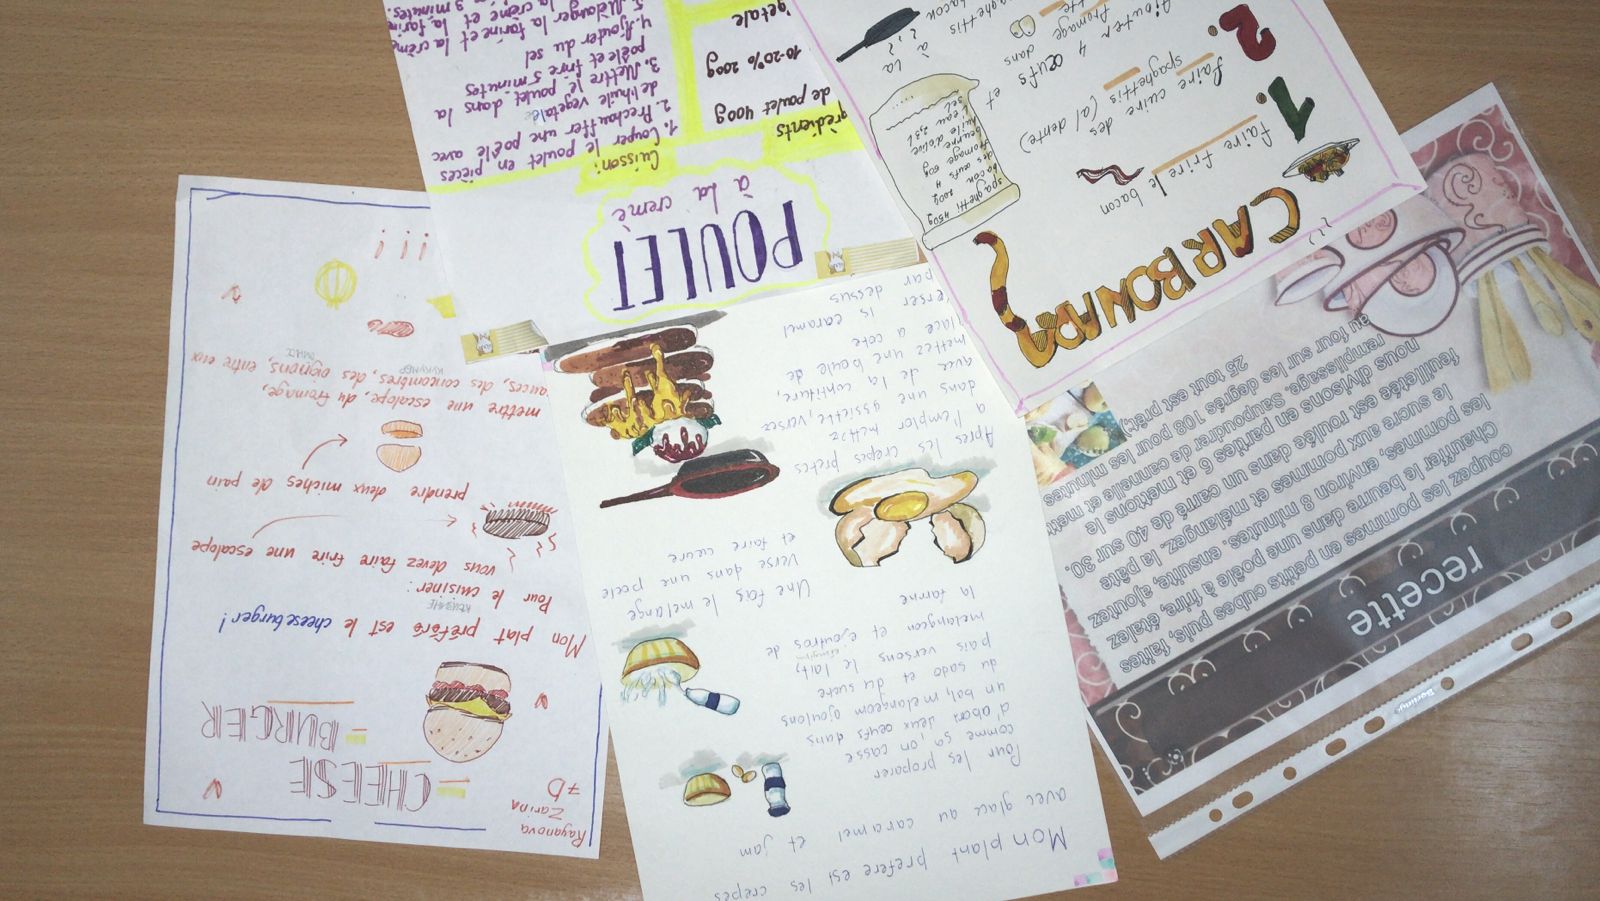 Rayanova
Zarina
7D
CHEESE
= BURGER
Mon plat préféré est le cheeseburger!
Pour le cuisiner:
vous devez faire frire une escalope
prendre deux miches de pain
mettre une escalope, du fromage,
sauces, des concombres, des oignons, entre eux
! ! !
Mon plant prefere est les crepes
avec glace au caramel et jam
Pour les proparer
comme ça, on casse
d'abord deux œufs dans
un bol, melangeom ajoutons
du sado et du sucre
pais versons le lait,
melangeon et ejoutros de
la farine
Une fois le melange
verse dans une poele
et faire cuire
Apres les crepes pretes
a l'emploi mettez
dans une assiette, versez
avec de la confiture,
mettez une boule de
glace a cote
verser is caramel
par dessus
POULET
à la creme
Cuisson:
1. Couper le poulet en pièces
2. Prechauffer une poêle avec
de l'huile vegetale
3. Mettre le poulet dans la
poêle et frire 5 minutes
4. Ajouter du sel
5. Mèlanger la farine et la crème
grédients
de poulet 400g
10-20% 200g
getale
CARBONARA
faire frire le
bacon
1.
faire cuire des
spaghettis (al dente)
2.
Ajouter 4 œufs et
fromage dans
spaghettis à la
bacon
spaghetti 450g
bacon 200g
des œufs 4
fromage 60g
beurre
huile d'olive
l'eau 2,3 L
sel
recette
coupez les pommes en petits cubes puis, faites
Chauffer le beurre dans une poêle à frire, étalez
les pommes, environ 8 minutes. ensuite, ajoutez
le sucre aux pommes et mélangez. la pâte
feuilletée est roulée dans un carré de 40 sur 30.
nous divisons en parties 6 et mettons le
remplissage. Saupoudrer de cannelle et mett
au four sur les degrés 108 pour les minutes
25 tout est prêt;